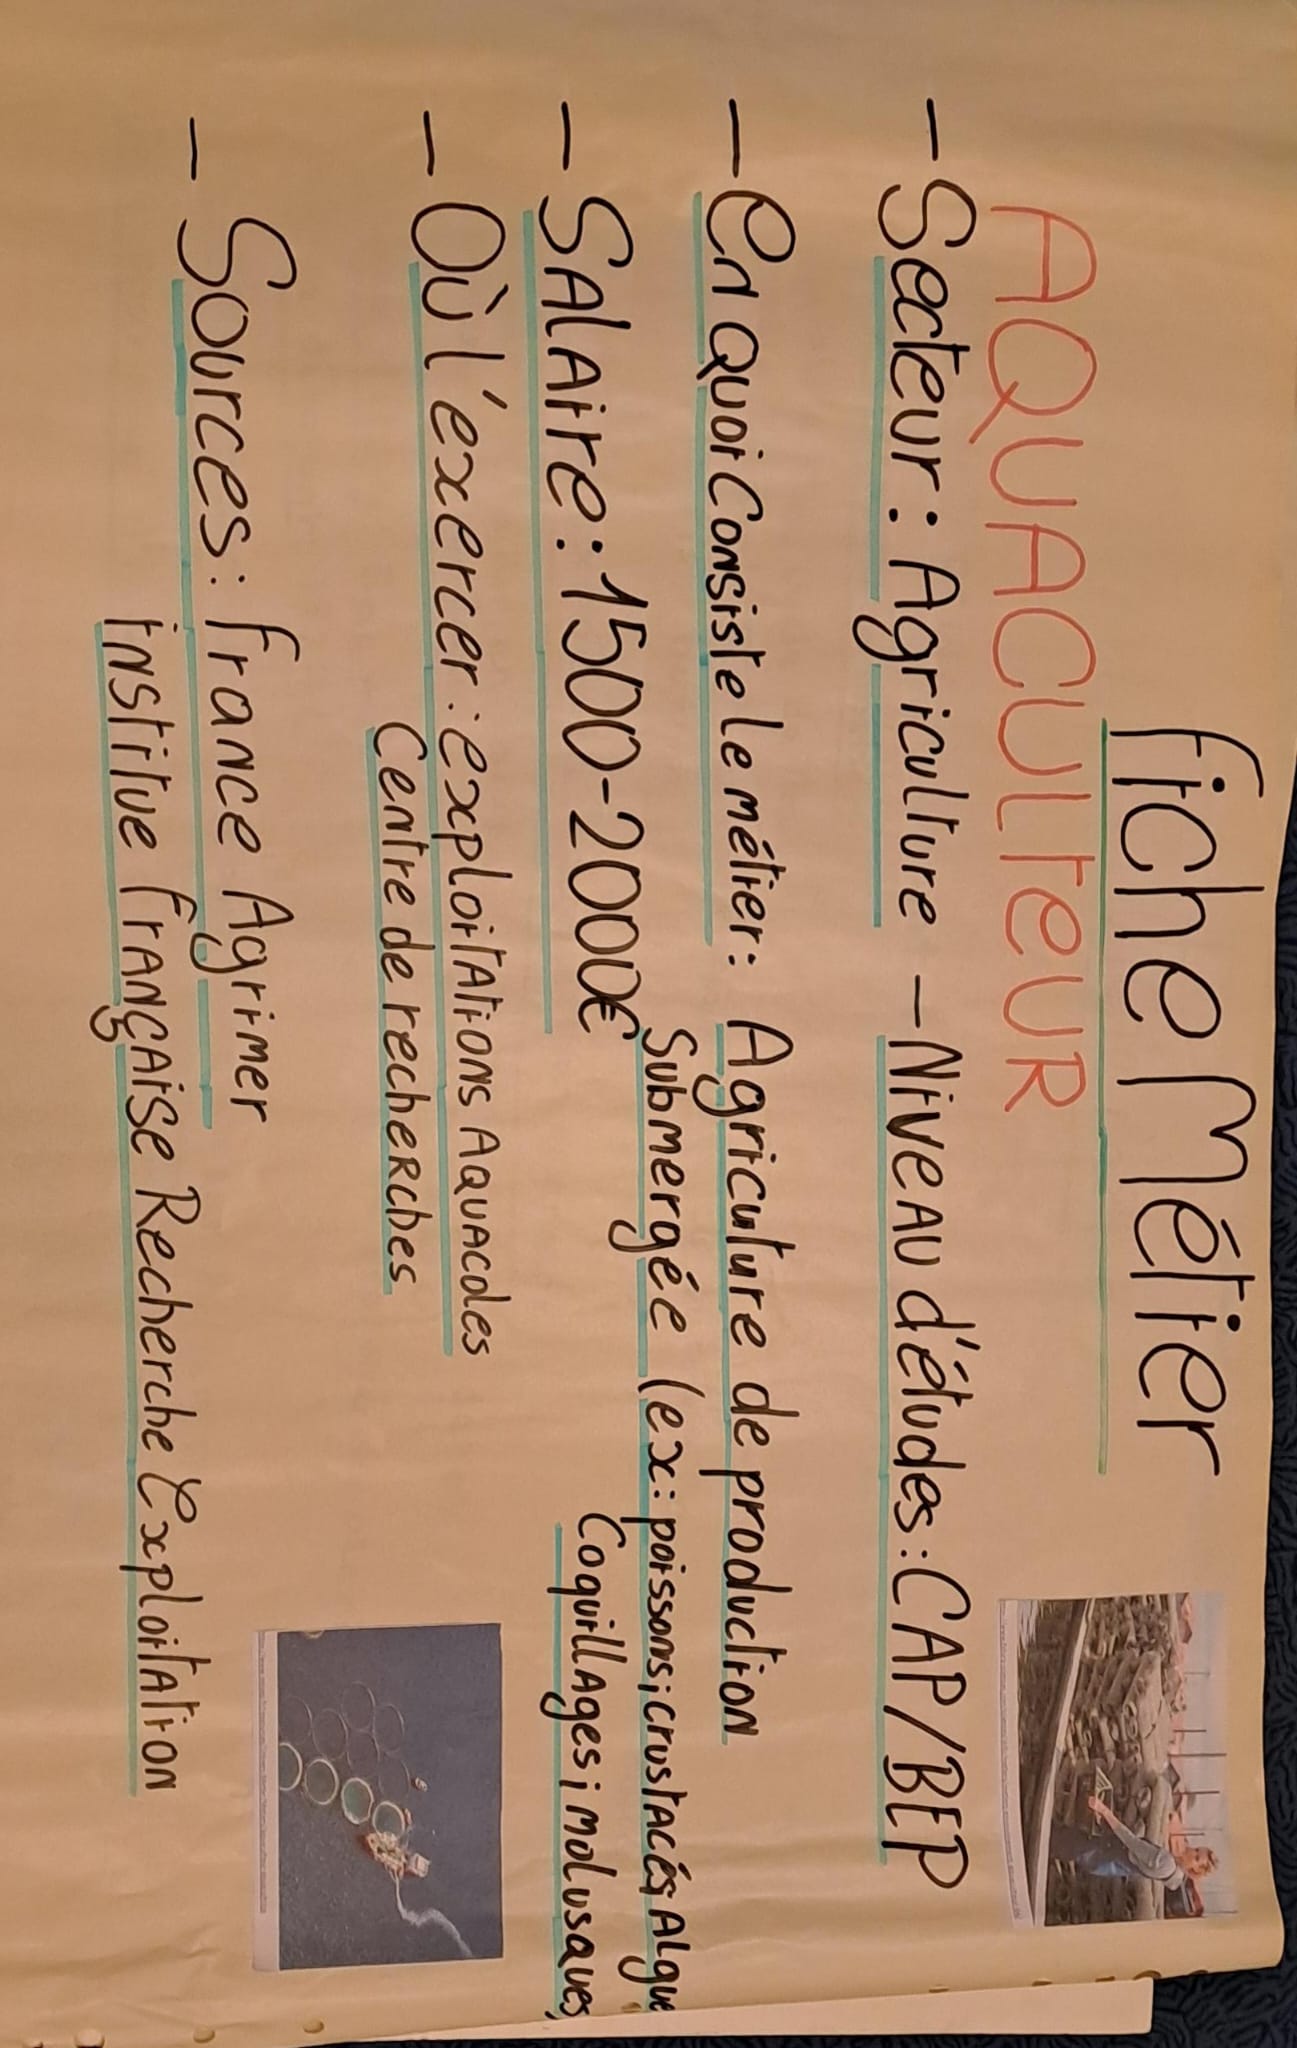 Fiche Métier
AQUACULTEUR
- Secteur : Agriculture - Niveau d'études : CAP/BEP
- En quoi consiste le métier : Agriculture de production
submergée (ex : poissons, crustacés Algue
coquillages, molusques,
- Salaire : 1500-2000€
- Où l'exercer : exploitations aquacoles
centre de recherches
- Sources : France Agrimer
institue française Recherche Exploitation